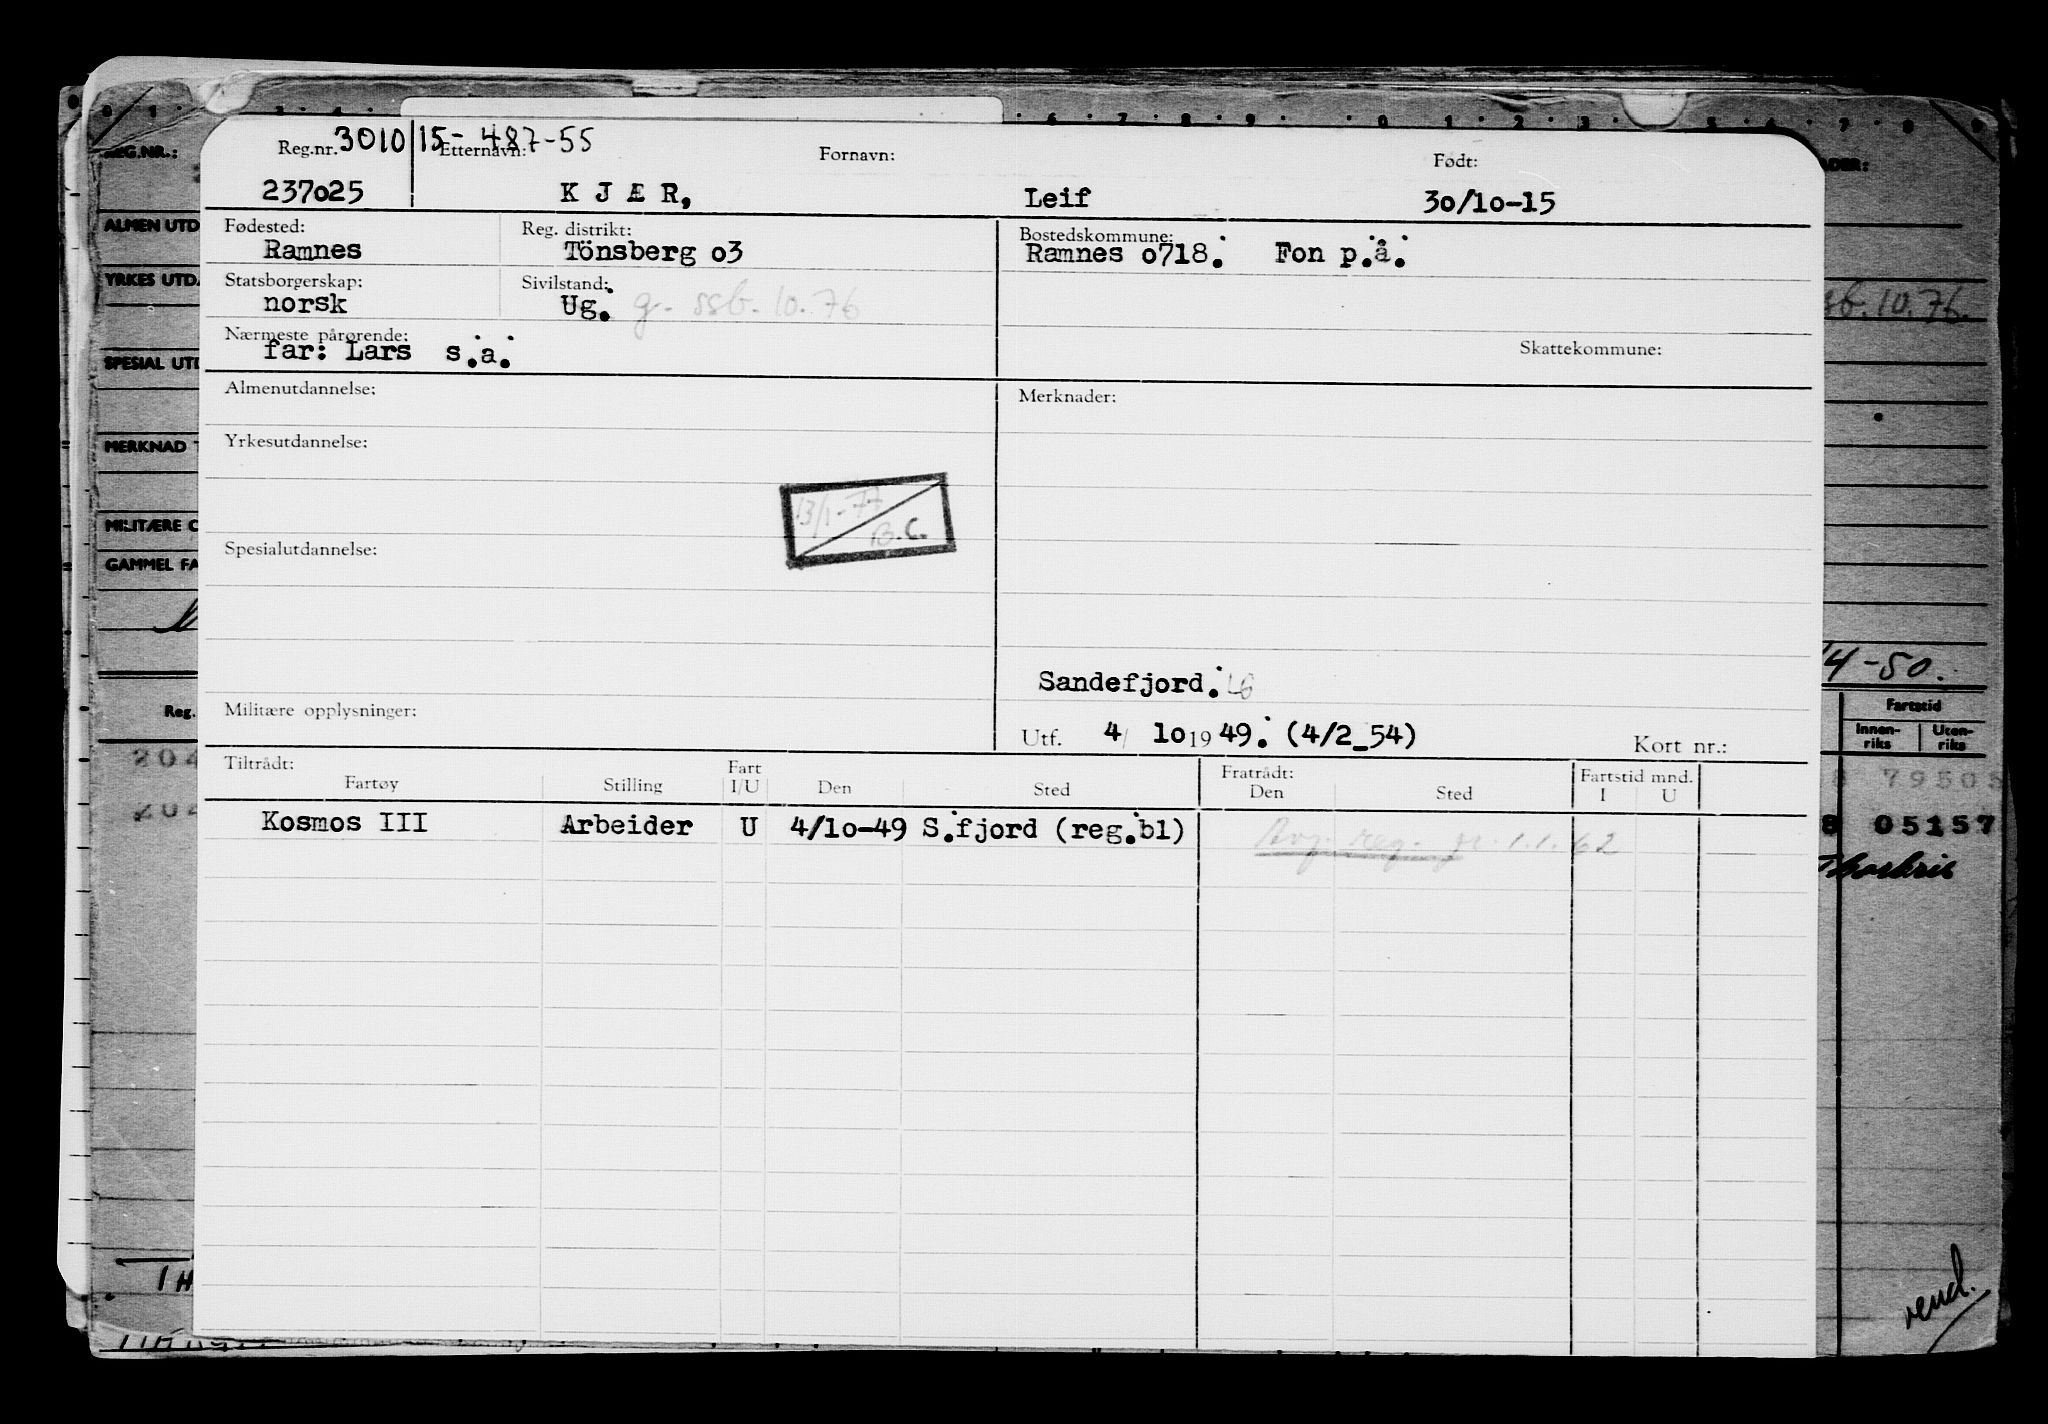 Reg.nr. 3010 15-487-55 Etternavn: Fornavn: Født:
237025 KJÆR, Leif 30/10-15
Fødested: Reg. distrikt: Bostedskommune:
Ramnes Tönsberg 03 Ramnes 0718. Fon p.å.
Statsborgerskap: Sivilstand:
norsk Ug. g. ssb. 10.76
Nærmeste pårørende:
far: Lars s.a. Skattekommune:
Almenutdannelse: Merknader:
Yrkesutdannelse:
13/1-77
B.C.
Spesialutdannelse:
Sandefjord.
Militære opplysninger:
Utf. 4/ 10 19 49. (4/2_54) Kort nr.:
Tiltrådt: Fart Fratrådt: Fartstid mnd.
Fartøy Stilling I/U Den Sted Den Sted I U
Kosmos III Arbeider U 4/10-49 S.fjord (reg.bl) reg. 1.1.62
REG.NR.:
ALMEN UTD
YRKES UTD.
SPESIAL UTD
MERKNAD
MILITÆRE
GAMMEL FA
Reg.
204
204
10.76.
14-50.
Fartstid
Innen-riks Uten-riks
79505
8 05157
vend.